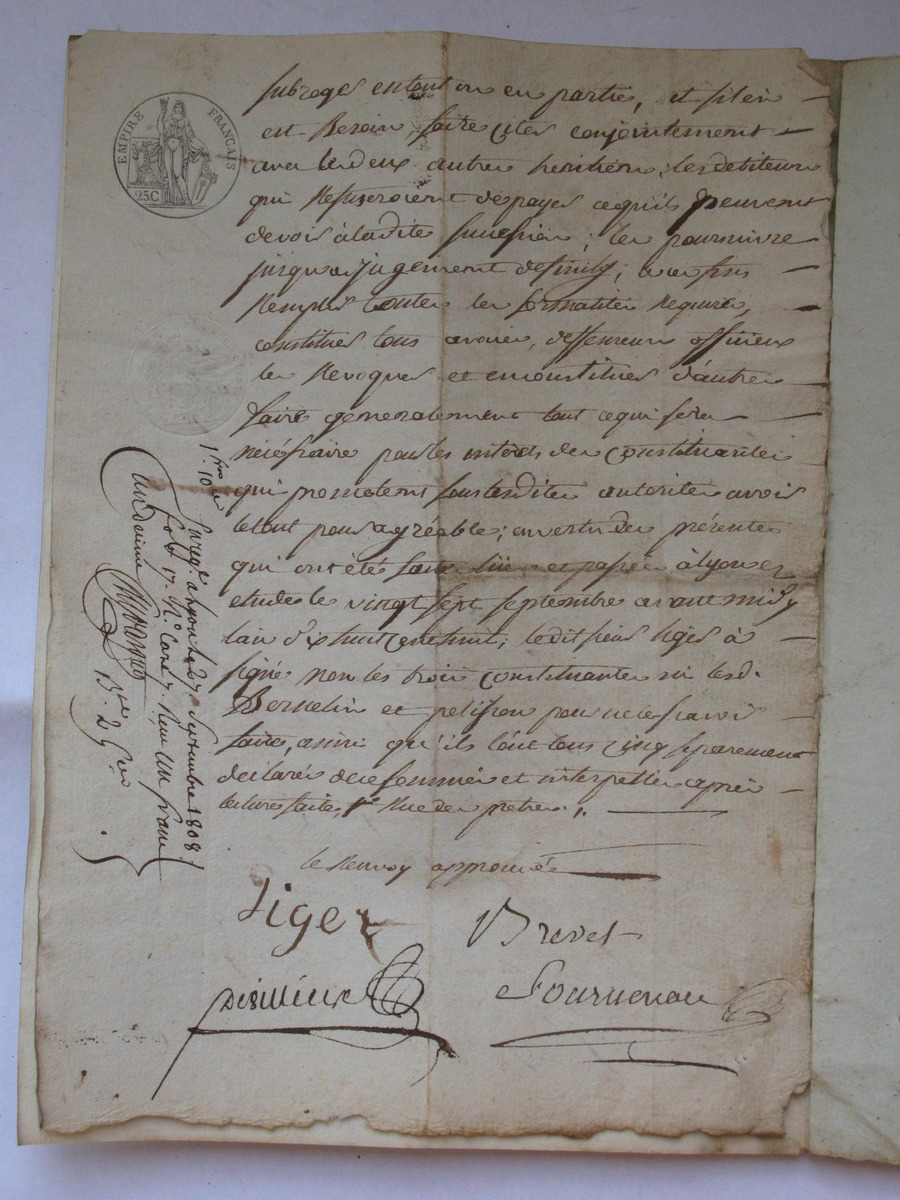 EMPIRE FRANÇAIS
25C
subroger en tout ou en partie, et s'il en
est Besoin, faire citer conjointement
avec les deux autres heritiers; les debiteurs
qui Refuseroient de payer ce qu'ils peuvent
devoir à ladite succession; les poursuivre
jusqu'a jugement definitif; a ces fins
Remplir toutes les formalités Requises,
constituer tous avoués, deffenseurs officieux
les Revoquer et en constituer d'autres
faire généralement tout ce qui sera
nécéssaire pour les intérets des Constituantes
qui promettent sous lesdites autorités avoir
le tout pour agréable; en vertu des présentes
qui ont étés faites lües et passées à lyon ez
etudes le vingt sept septembre avant midy
l'an dix huit cent huit; ledit sieur liger à
signé non les trois constituantes ni lesd.
et petisson pour ne le scavoir
faire, ainsi qu'ils l'ont tous cinq séparement
declarés de ce sommés et interpellés après
lecture faite,
le Renvoy approuvé
liger
Brevet
Fournereau
1.fr 10 c
Enreg.é a lyon le 27 Septembre 1808.
fol. 17. R.o Case 7. Reçu un franc